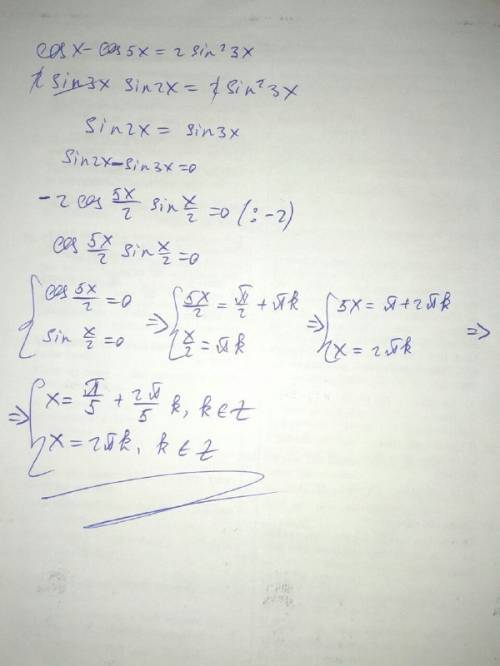 cos x - cos 5x = 2 sin² 3x
2 sin 3x sin 2x = 2 sin² 3x
sin 2x = sin 3x
sin 2x - sin 3x = 0
-2 cos 5x/2 sin x/2 = 0 (: -2)
cos 5x/2 sin x/2 = 0
{ cos 5x/2 = 0 => { 5x/2 = π/2 + πk => { 5x = π + 2πk =>
sin x/2 = 0 x/2 = πk x = 2πk
=> { x = π/5 + 2π/5 k, k ∈ Z
x = 2πk, k ∈ Z